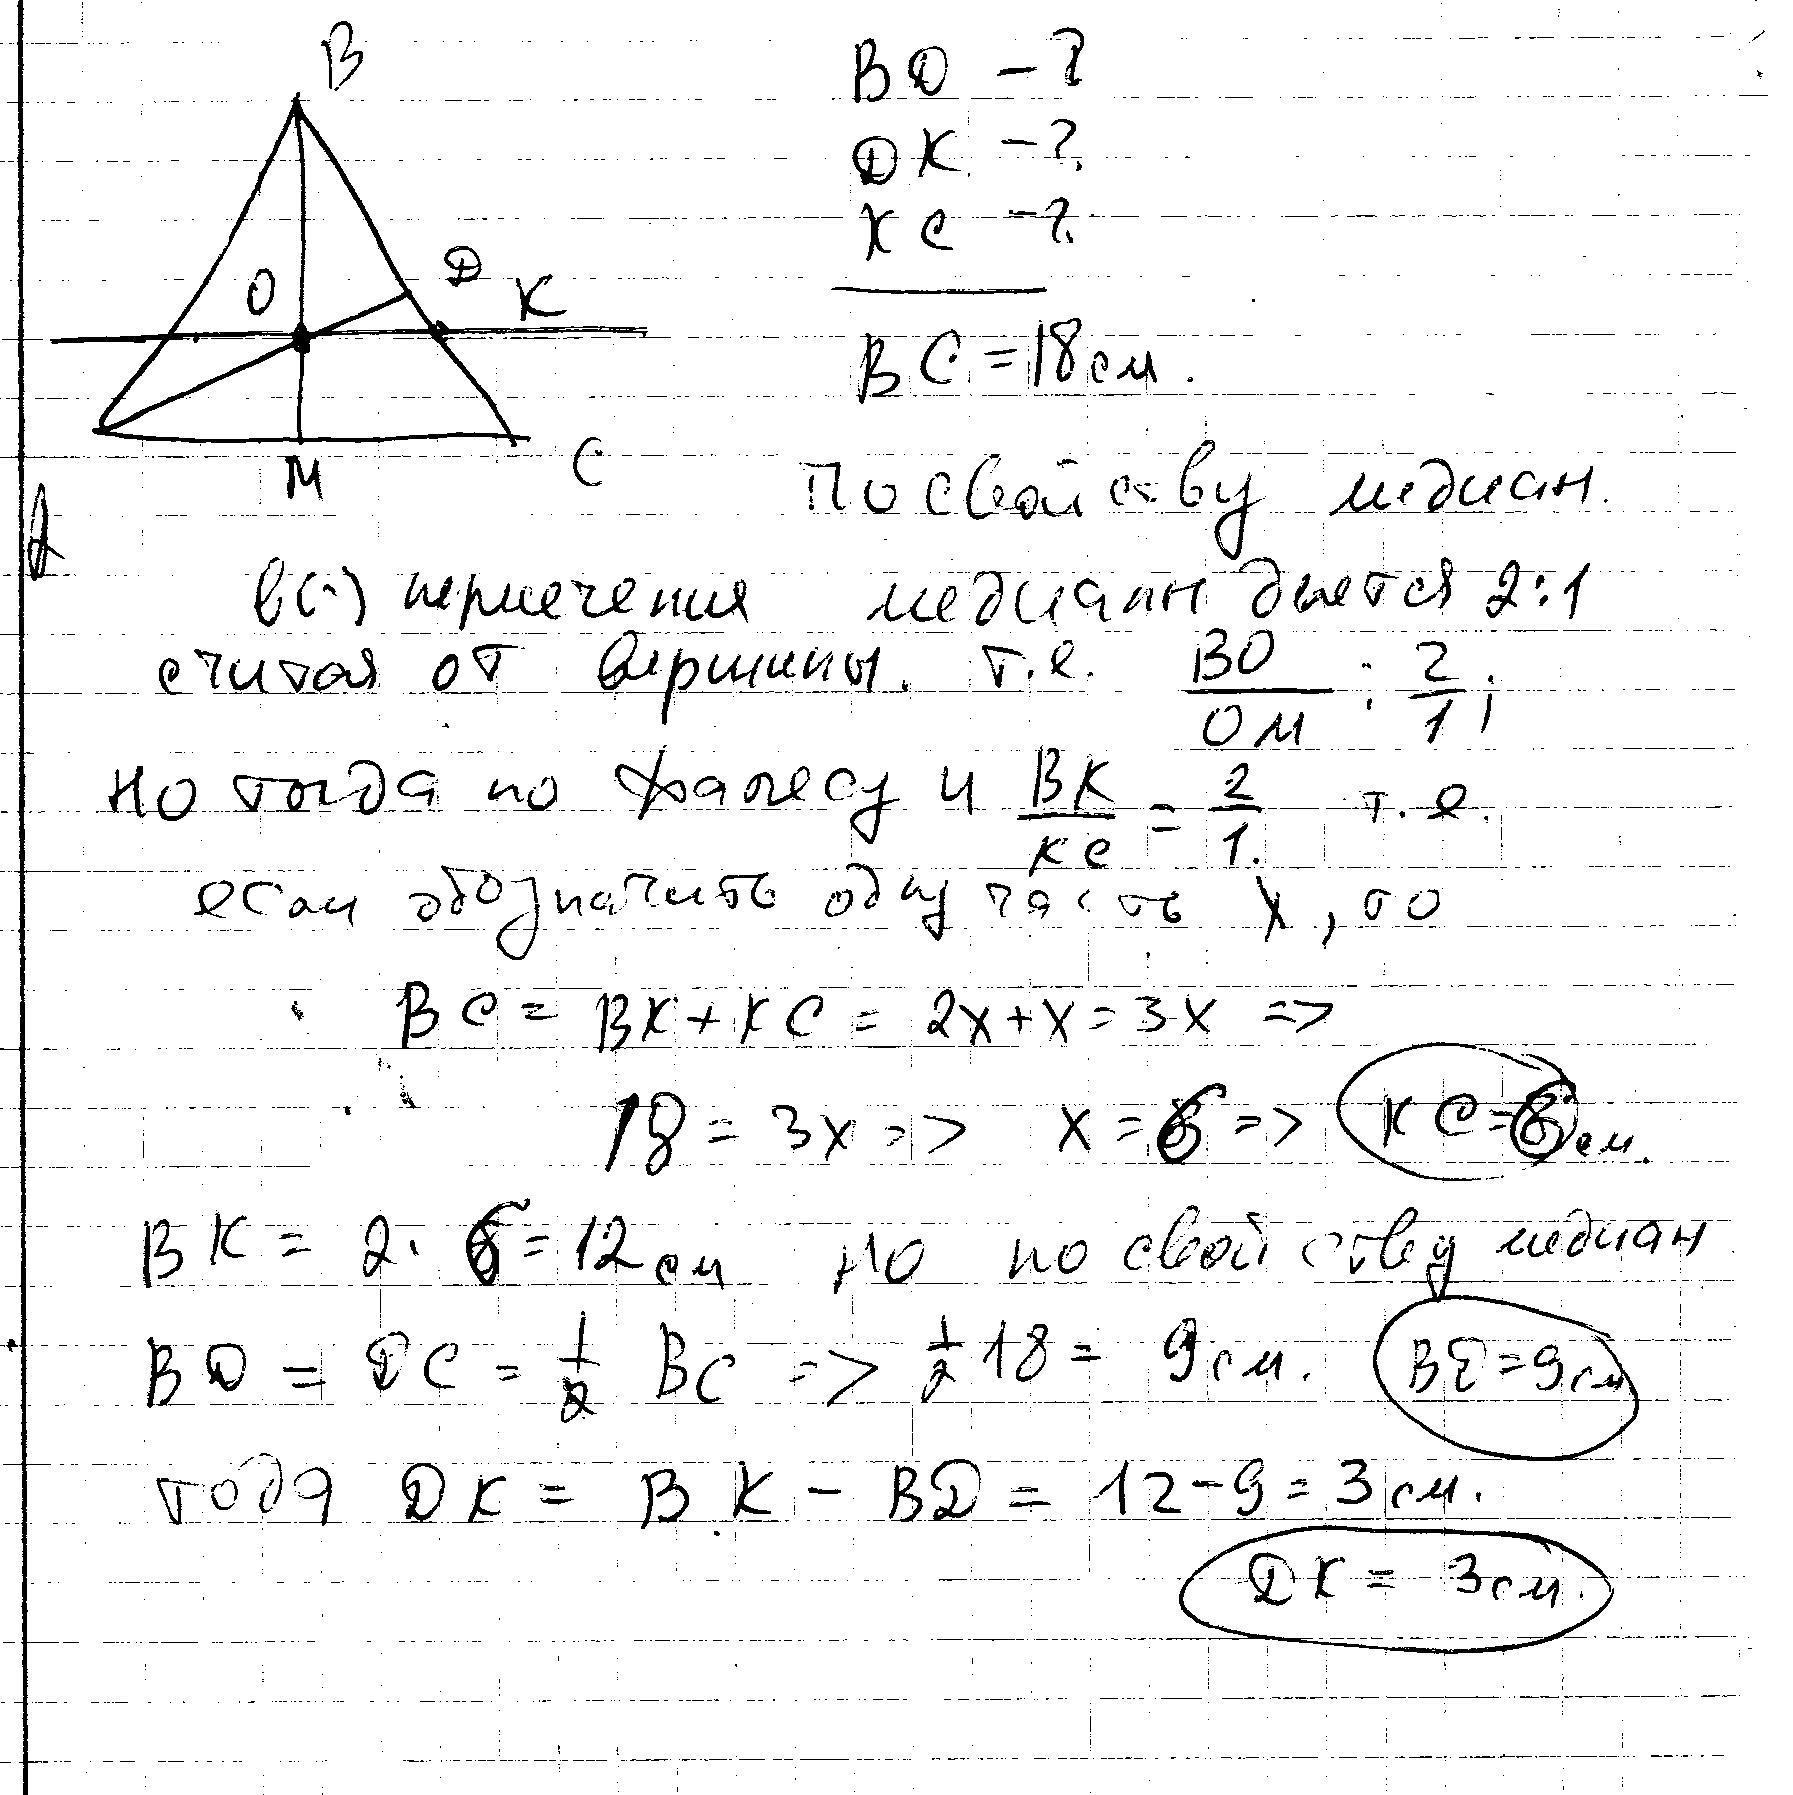 B
BD - ?
DK - ?
KC - ?
D
O
K
BC = 18 см.
M
C
A
По свойству медиан.
в (·) пересечения медианы делятся 2:1
считая от вершины. т.е. BO/OM : 2/1;
но тогда по Фалесу и BK/KC = 2/1. т.е.
если обозначить одну часть x, то
BC = BK + KC = 2x + x = 3x =>
18 = 3x => x = 6 => KC = 6 см.
BK = 2 · 6 = 12 см но по свойству медиан
BD = DC = 1/2 BC => 1/2 18 = 9 см. BD = 9 см
тогда DK = BK - BD = 12 - 9 = 3 см.
DK = 3 см.